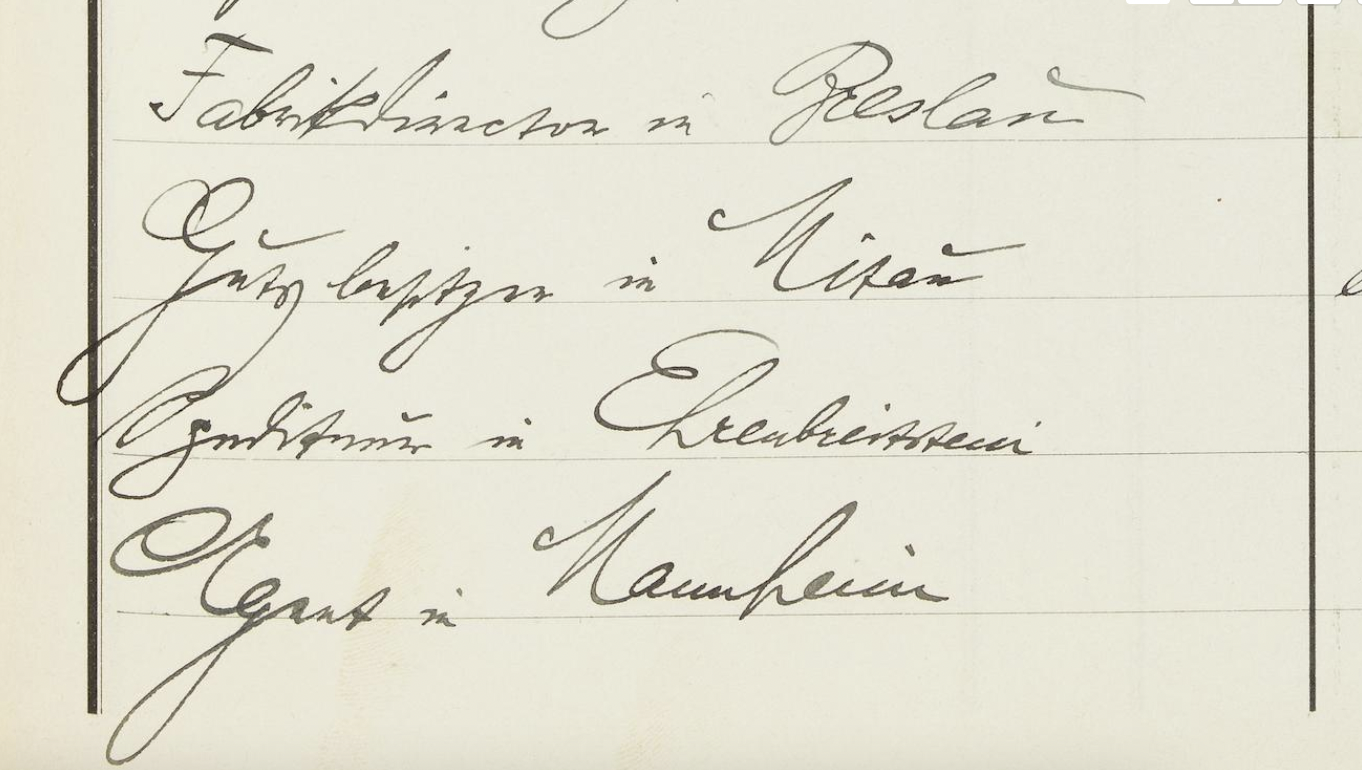 Fabrikdirector in Breslau
Gutsbesitzer in Mitau
Spediteur in Ehrenbreitstein
Agent in Mannheim